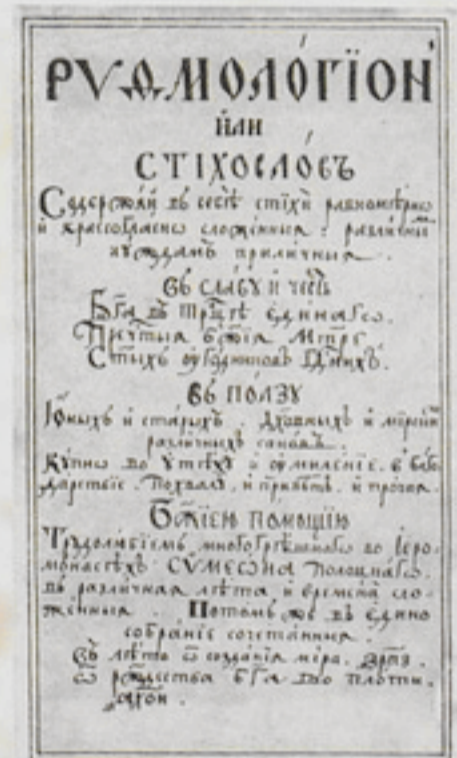 РУѲМОЛО́ГЇОН
и҆лѝ
СТІХОСЛО́ВЪ
Содержѧ́й въ себѣ̀ стїхѝ равномѣ́рнѡ
и҆ краесогла́снѡ сложе́нныѧ : разли́чны
ну́ждамъ прили́чныѧ .
Въ сла́ву и҆ че́сть
Бг҃а въ Трⷪ҇цѣ є҆ди́нагѡ .
Пречⷭ҇тыѧ бж҃їѧ Мт҃ре .
Ст҃ы́хъ ᲂу҆го́дникѡвъ гдⷭ҇нихъ .
ВЪ ПО́ЛЗУ
Ю҆́ныхъ и҆ ста́рыхъ . Дх҃о́вныхъ и҆ мїрски́
разли́чныхъ санѡ́въ .
Ку́пнѡ во ᲂу҆тѣ́ху и҆ ᲂу҆миле́нїе , в бл҃го
да́рствїе . Похвалу̀ , и҆ привѣ́тъ . и҆ про́чаѧ .
Бж҃їею по́мощїю
Трудолю́бїемъ многогрѣ́шнагѡ во І҆еро-
мона́сѣхъ СУМЕѠ́НА По́лоцкагѡ .
въ разли́чнаѧ лѣ̑та и҆ времена̀ сло-
же́нныѧ . Пото́мъ же въ є҆ди́но
собра́нїе сочета́нныѧ .
Въ лѣ́то ѿ созда́нїѧ мі́ра . ҂зрп҃з .
ѿ рождества̀ бг҃а по пло́ти .
҂ахо҃и .